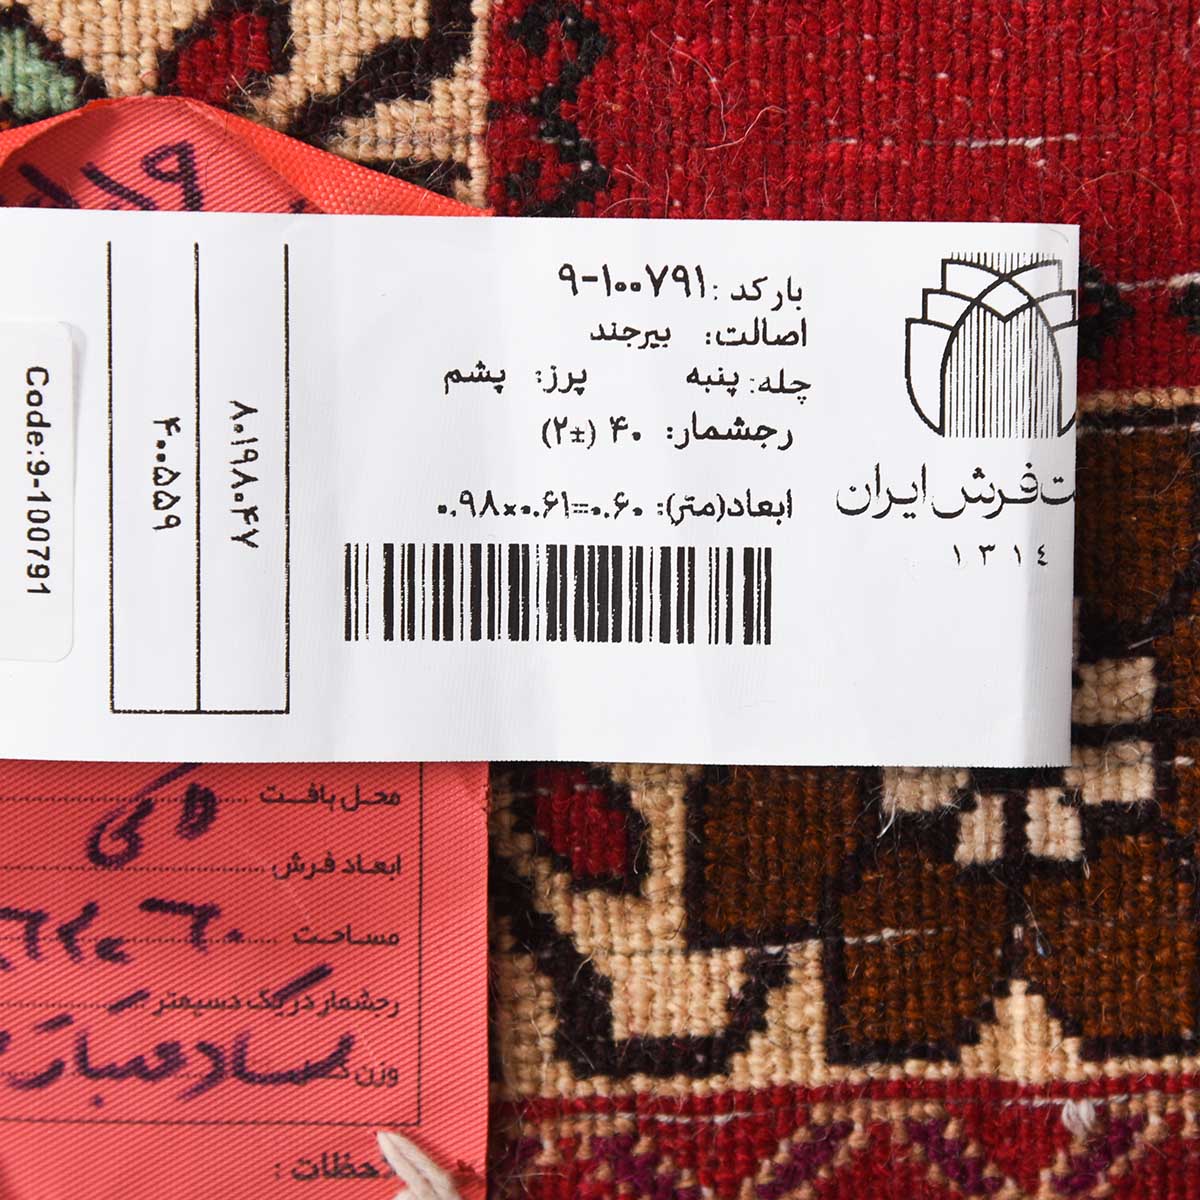 بارکد: ۹-۱۰۰۷۹۱
اصالت: بیرجند
چله: پنبه پرز: پشم
رجشمار: ۴۰ (±۲)
ابعاد(متر): ۰.۹۸×۰.۶۱=۰.۶۰
فرش ایران
۱۳۱۴
۸۰۱۹۸۰۴۷
۴۰۰۵۵۹
Code:9-100791
محل بافت
ابعاد فرش
مساحت ۰.۶۰
رجشمار در یک دسیمتر
وزن